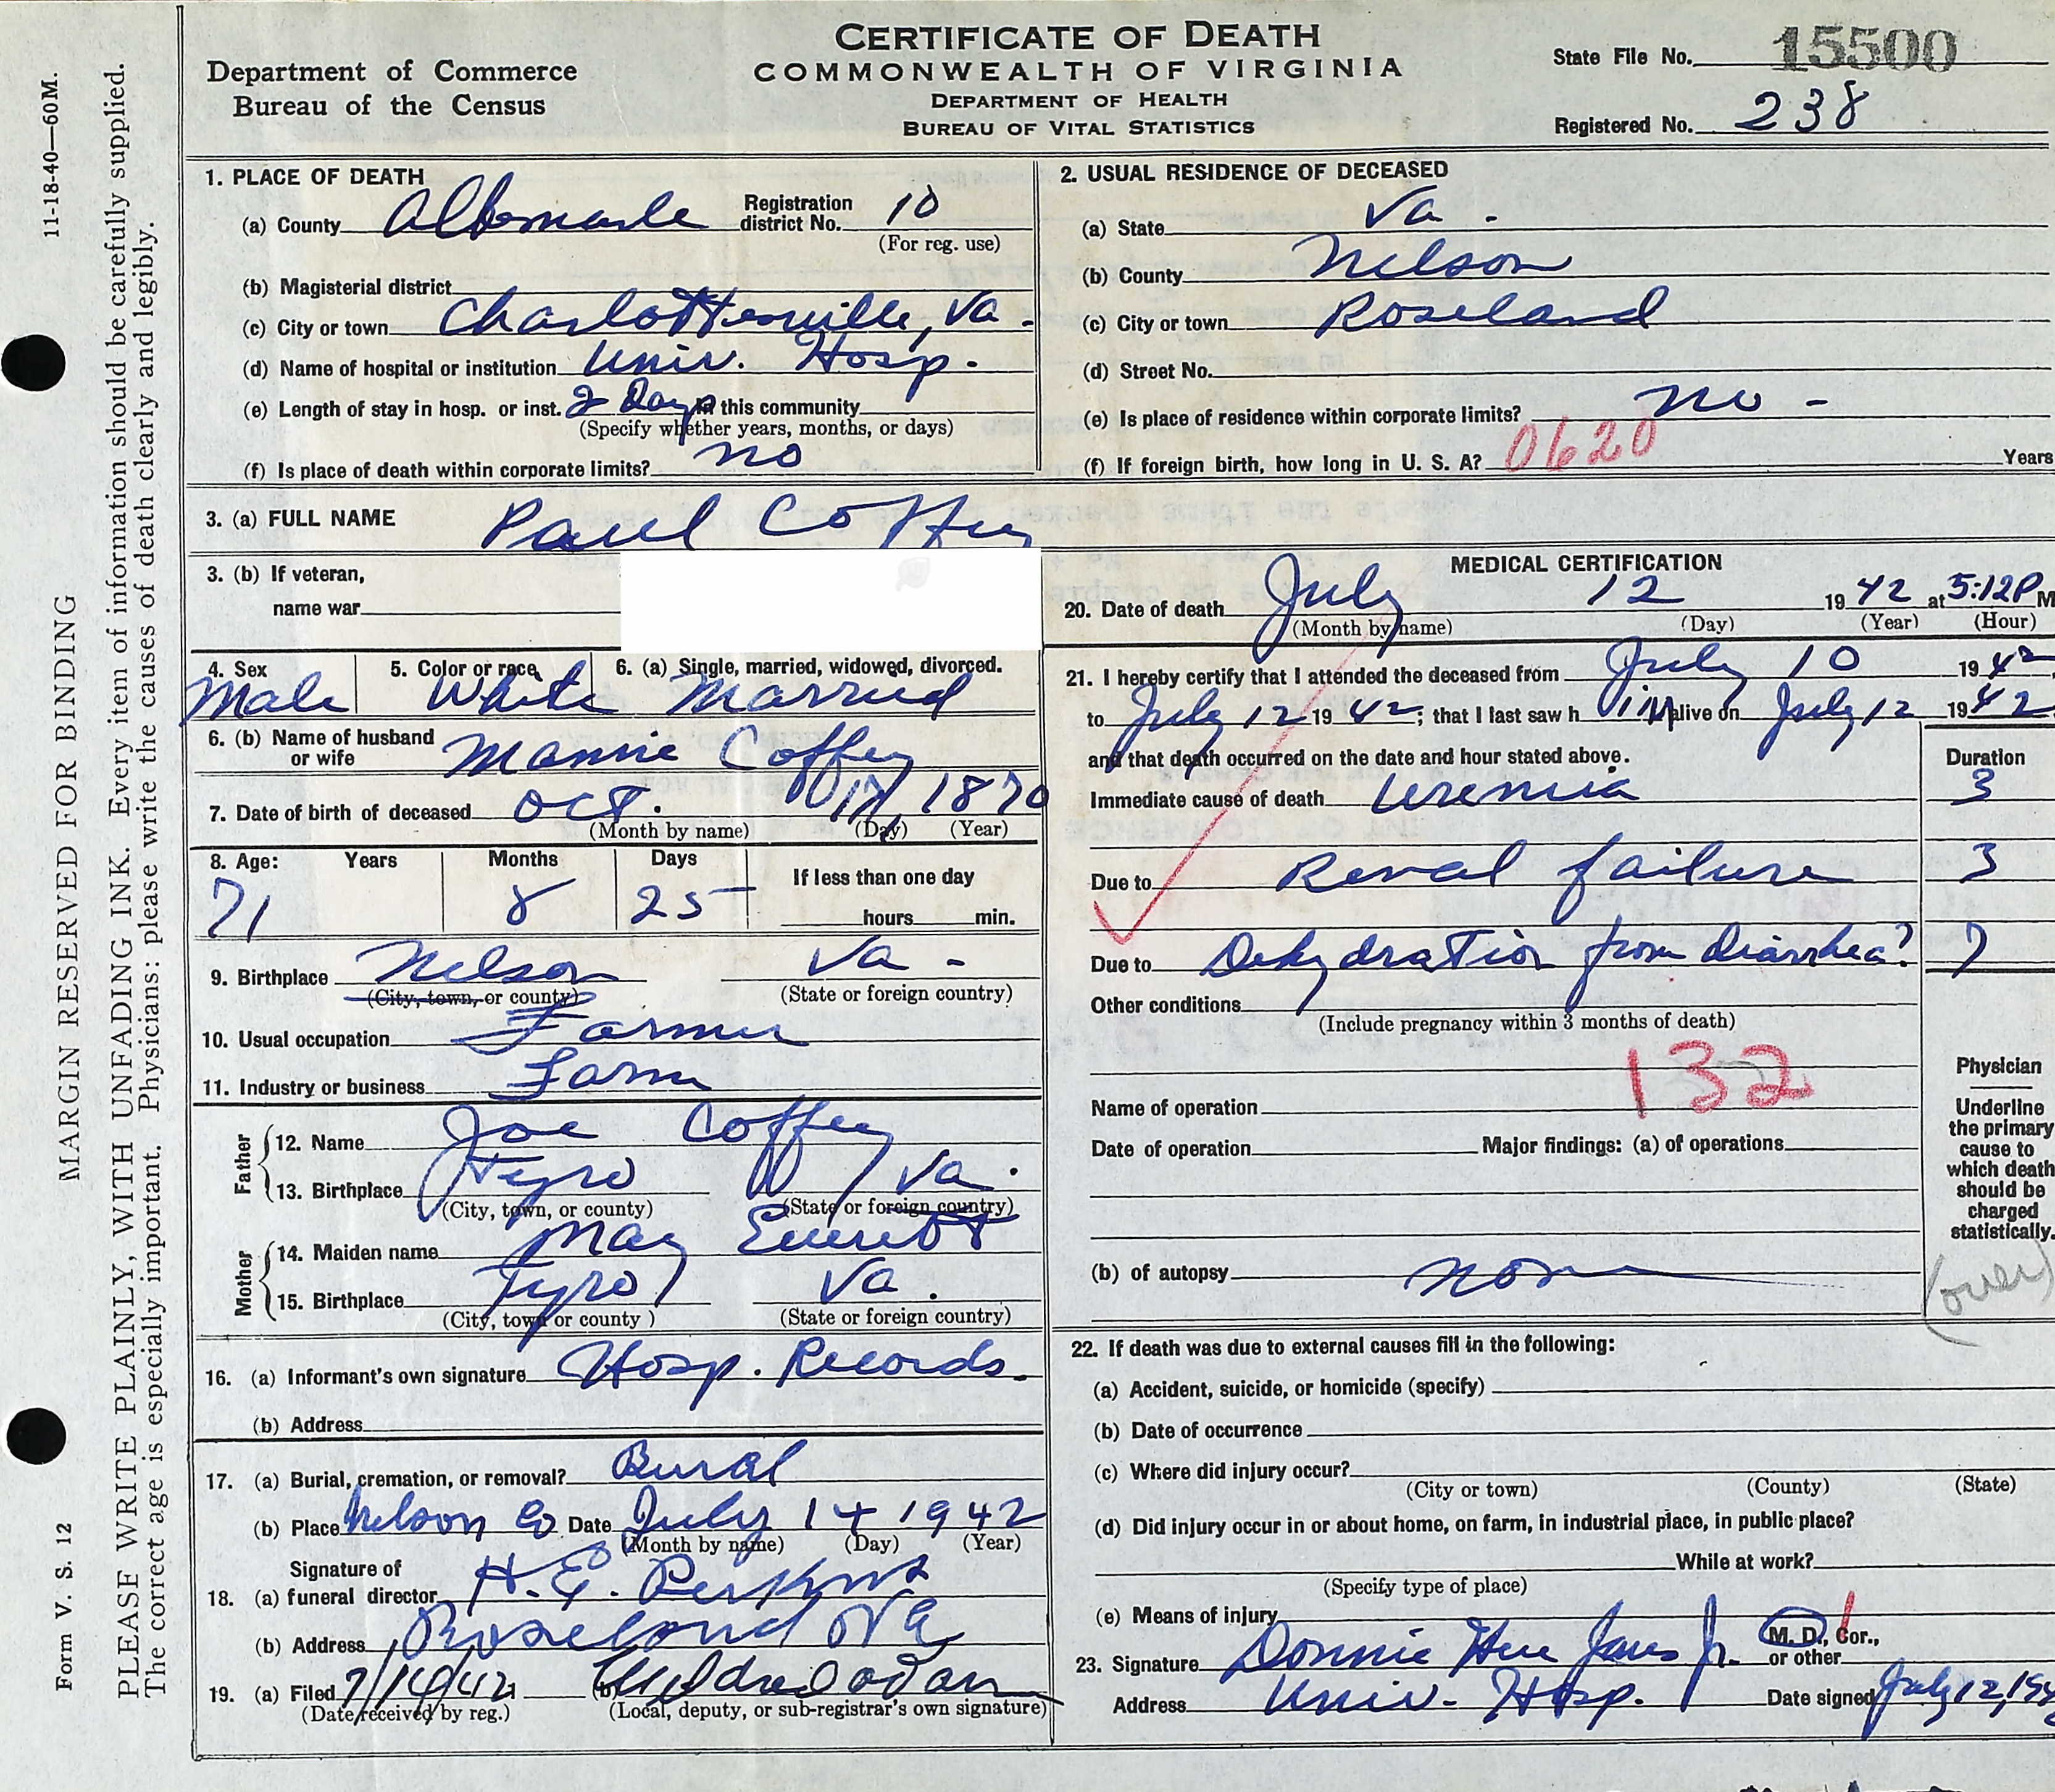 CERTIFICATE OF DEATH
COMMONWEALTH OF VIRGINIA
DEPARTMENT OF HEALTH
BUREAU OF VITAL STATISTICS
Department of Commerce
Bureau of the Census
State File No. 15500
Registered No. 238
11-18-40—60M.
MARGIN RESERVED FOR BINDING
PLEASE WRITE PLAINLY, WITH UNFADING INK. Every item of information should be carefully supplied.
The correct age is especially important. Physicians: please write the causes of death clearly and legibly.
Form V. S. 12
1. PLACE OF DEATH
(a) County Albemarle Registration district No. 10
(For reg. use)
(b) Magisterial district
(c) City or town Charlottesville, Va.
(d) Name of hospital or institution Univ. Hosp.
(e) Length of stay in hosp. or inst. 2 Days In this community
(Specify whether years, months, or days)
(f) Is place of death within corporate limits? no
2. USUAL RESIDENCE OF DECEASED
(a) State Va.
(b) County Nelson
(c) City or town Roseland
(d) Street No.
(e) Is place of residence within corporate limits? no -
0620
(f) If foreign birth, how long in U. S. A? Years
3. (a) FULL NAME Paul Coffey
3. (b) If veteran,
name war
4. Sex Male
5. Color or race White
6. (a) Single, married, widowed, divorced. Married
6. (b) Name of husband or wife Mannie Coffey
7. Date of birth of deceased Oct. 17, 1870
(Month by name) (Day) (Year)
8. Age: Years Months Days If less than one day
71 8 25 hours min.
9. Birthplace Nelson Va -
(City, town, or county) (State or foreign country)
10. Usual occupation Farmer
11. Industry or business Farm
Father
12. Name Joe Coffey
13. Birthplace Tyro Va.
(City, town, or county) (State or foreign country)
Mother
14. Maiden name May Everett
15. Birthplace Tyro Va.
(City, town or county ) (State or foreign country)
16. (a) Informant's own signature Hosp. Records
(b) Address
17. (a) Burial, cremation, or removal? Bural
(b) Place Nelson Co Date July 14 1942
(Month by name) (Day) (Year)
Signature of
18. (a) funeral director H. E. Perkins
(b) Address Roseland Va
19. (a) Filed 7/14/42 (b)
(Date received by reg.) (Local, deputy, or sub-registrar's own signature)
MEDICAL CERTIFICATION
20. Date of death July 12 1942 at 5:12 P M
(Month by name) (Day) (Year) (Hour)
21. I hereby certify that I attended the deceased from July 10 1942,
to July 12 1942; that I last saw h im alive on July 12 1942
and that death occurred on the date and hour stated above.
Duration
Immediate cause of death Uremia 3
Due to Renal failure 3
Due to Dehydration from diarrhea? 7
Other conditions
(Include pregnancy within 3 months of death)
132
Name of operation
Date of operation Major findings: (a) of operations
(b) of autopsy none
Physician
Underline the primary cause to which death should be charged statistically.
(over)
22. If death was due to external causes fill in the following:
(a) Accident, suicide, or homicide (specify)
(b) Date of occurrence
(c) Where did injury occur?
(City or town) (County) (State)
(d) Did injury occur in or about home, on farm, in industrial place, in public place?
While at work?
(Specify type of place)
(e) Means of injury
23. Signature Donnie Jones Jr. M. D., Cor., or other
Address Univ. Hosp. Date signed July 12, 194